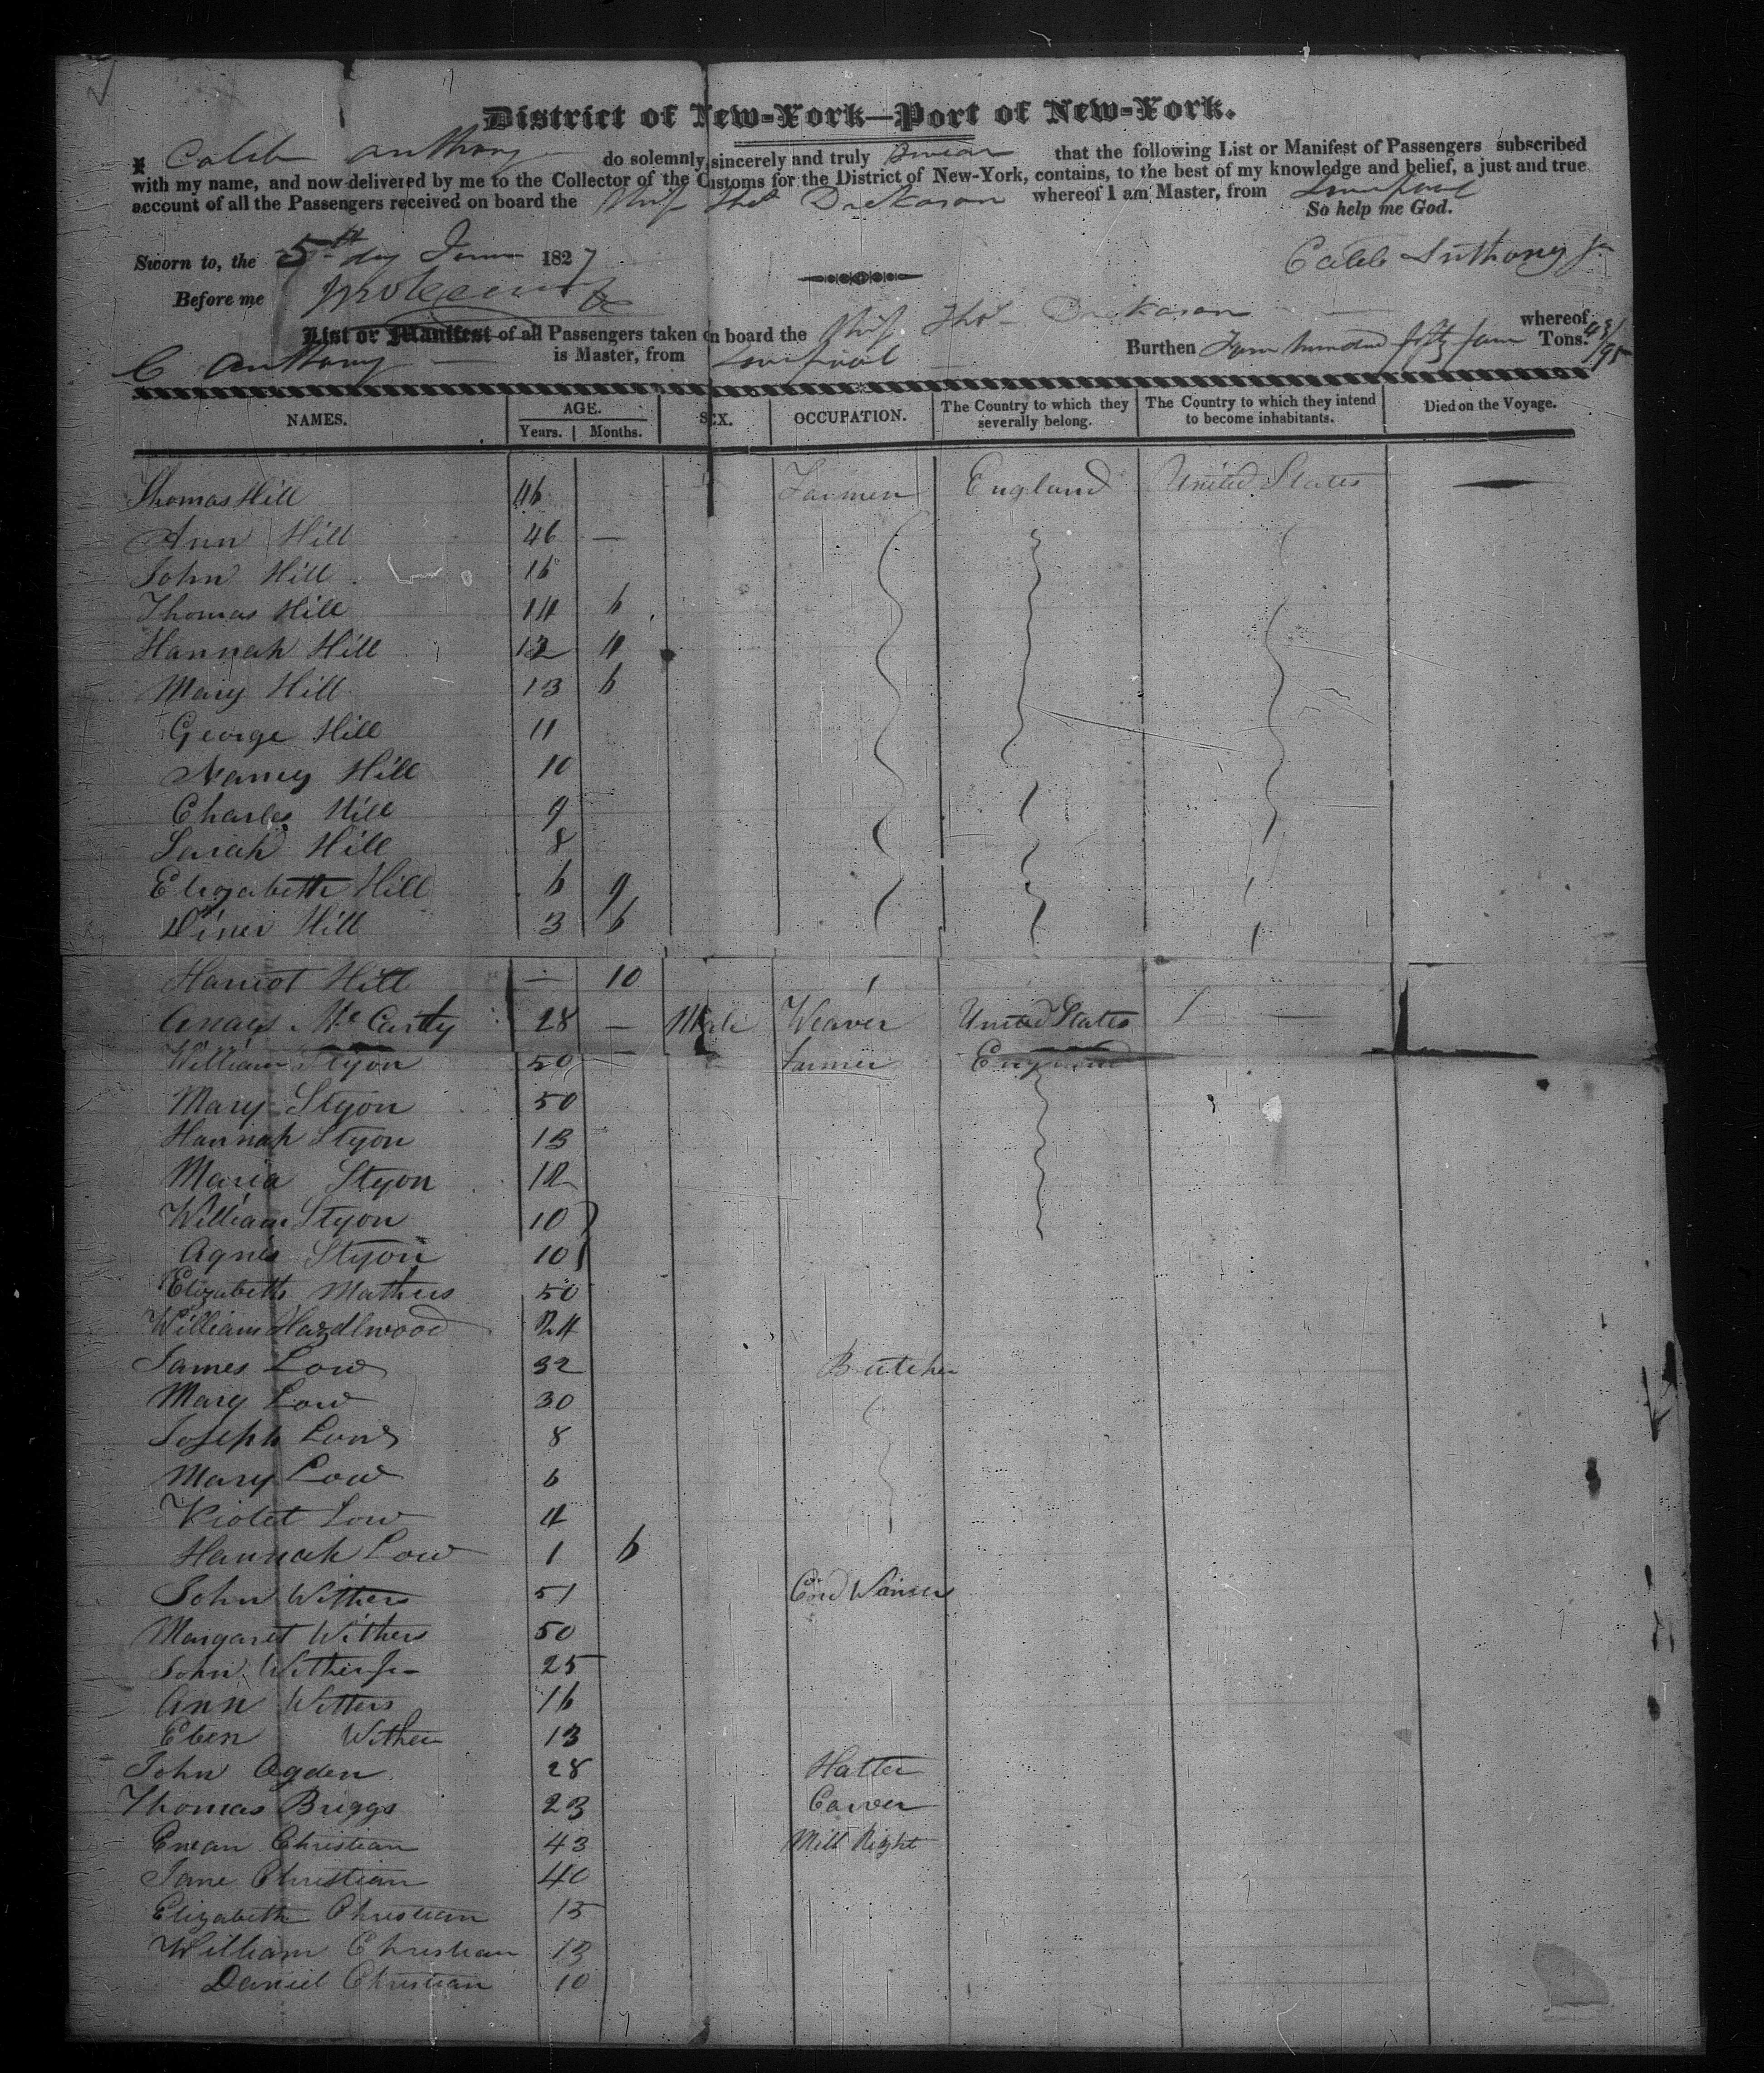 District of New-York—Port of New-York.
I Caleb Anthony do solemnly, sincerely and truly swear that the following List or Manifest of Passengers subscribed
with my name, and now delivered by me to the Collector of the Customs for the District of New-York, contains, to the best of my knowledge and belief, a just and true
account of all the Passengers received on board the Ship Thos Dickason whereof I am Master, from Liverpool
So help me God.
Sworn to, the 5th day June 1827
Caleb Anthony Jr
Before me
List or Manifest of all Passengers taken on board the Ship Thos Dickason whereof
C Anthony is Master, from Liverpool Burthen Four hundred fifty four Tons. /95
NAMES. AGE. Years. Months. SEX. OCCUPATION. The Country to which they severally belong. The Country to which they intend to become inhabitants. Died on the Voyage.
Thomas Hill 46 Farmer England United States —
Ann Hill 46 —
John Hill 16
Thomas Hill 14 6
Hannah Hill 12 11
Mary Hill 13 6
George Hill 11
Nancy Hill 10
Charles Hill 9
Sarah Hill 8
Elizabeth Hill 6 9
Diner Hill 3 6
Harriot Hill — 10
Mc Carty 28 — Male Weaver United States —
William Styon 50 Farmer England
Mary Styon 50
Hannah Styon 13
Maria Styon 12
William Styon 10
Agnes Styon 10
Elizabeth Mathers 50
William Hazdlwood 24
James Low 32 Butcher
Mary Low 30
Joseph Low 8
Mary Low 6
Violet Low 4
Hannah Low 1 6
John Withers 51 Cord Wainer
Margaret Withers 50
John Withers Jr 25
Ann Withers 16
Elen Wither 13
John Ogden 28 Hatter
Thomas Briggs 23 Carver
Ewan Christian 43 Mill Right
Jane Christian 40
Elizabeth Christian 15
William Christian 13
Daniel Christian 10